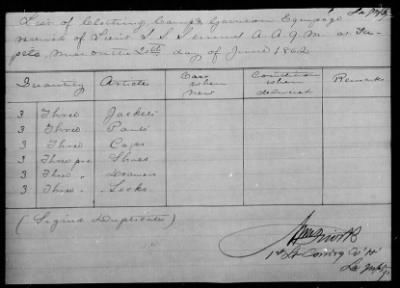 List of Clothing Camp & Garrison Equipage
receivd of Lieut S. S. Semmel A. A. Q. M. at Tu-
pelo, Miss on the 2 day of June 1862
Quantity Article Cost when new Condition when delivered Remark
3 Three Jackets
3 Three Pants
3 Three Caps
3 Three prs Shoes
3 Three " Drawers
3 Three " Socks
(Signed Duplicates)
1st Lt Comdg Co "H"